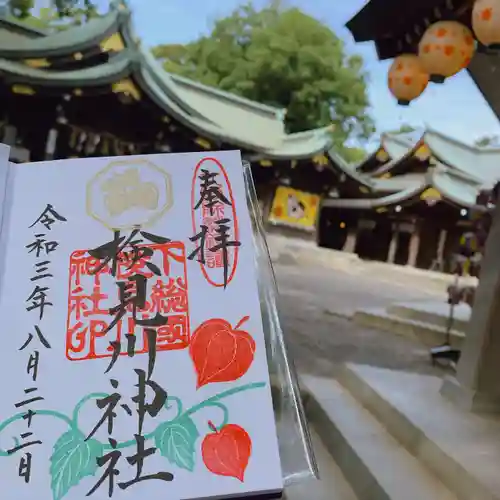 奉拝
検見川神社
下総国
検見川
神社印
令和三年八月二十二日